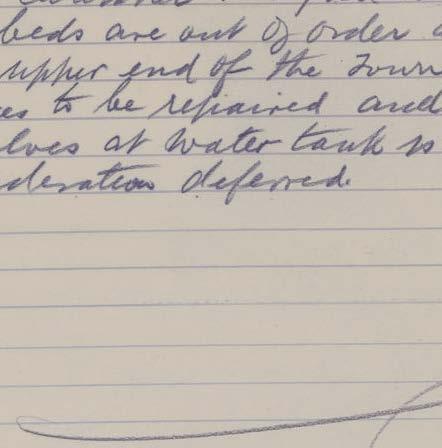 beds are out of order
upper end of the Town
es to be repaired and
lves at water tank is
deration deferred.